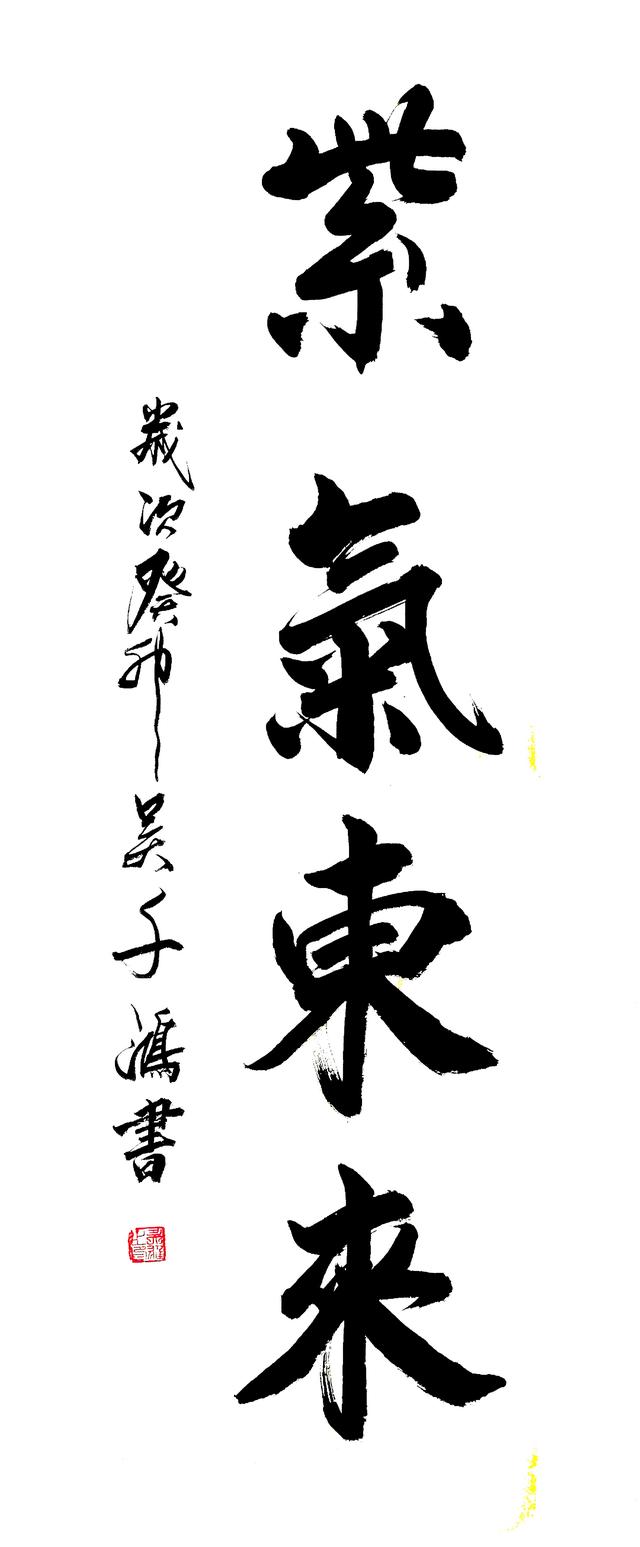 紫氣東來
歲次癸卯吴千鴻書